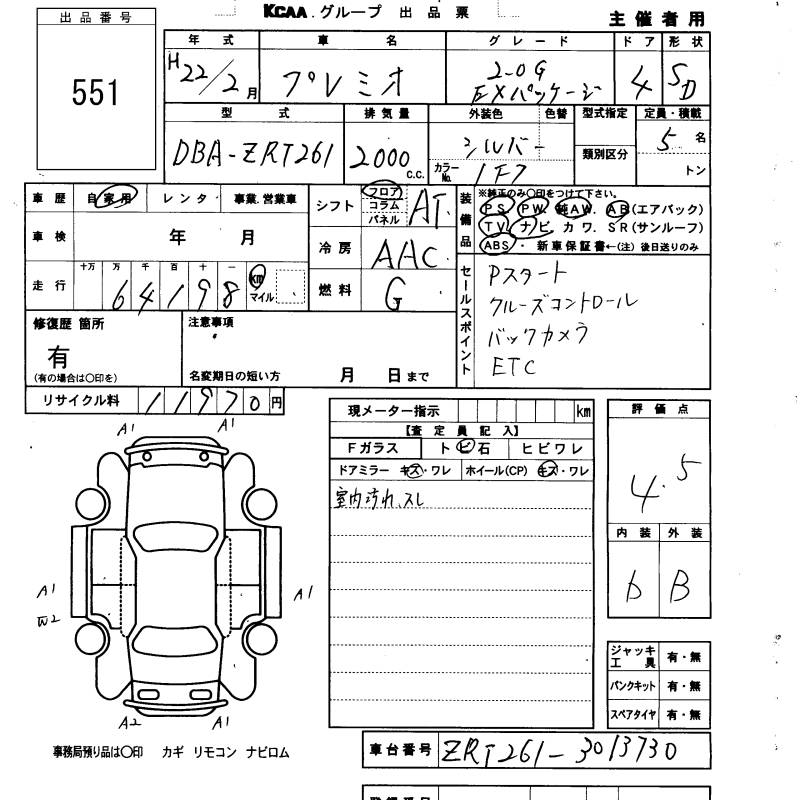 KCAA.グループ 出品票
主催者用
出品番号
551
年式 車名 グレード ドア 形状
H22/2月 プレミオ 2.0G EXパッケージ 4 SD
型式 排気量 外装色 色替 型式指定 定員・積載
DBA-ZRT261 2000c.c. シルバー 類別区分 5名
カラーNo. 1F7 トン
車歴 自家用 レンタ 事業.営業車
車検 年 月
走行 十万 万 千 百 十 一
64198 km マイル
シフト フロア コラム パネル AT
冷房 AAC
燃料 G
装備品 ※純正のみ○印をつけて下さい。
PS. PW. 純AW. AB(エアバック)
TV ナビ. カワ. SR(サンルーフ)
ABS・ 新車保証書←(注) 後日送りのみ
セールスポイント
Pスタート
クルーズコントロール
バックカメラ
ETC
修復歴 箇所 注意事項
有
(有の場合は○印を) 名変期日の短い方 月 日まで
リサイクル料 11970円
現メーター指示 km
【査定員記入】
Fガラス トビ石 ヒビワレ
ドアミラー キズ・ワレ ホイール(CP) キズ・ワレ
室内汚れ、スレ
評価点
4.5
内装 外装
b B
A1 A1
A1 A1
W2
A2 A1
ジャッキ工具 有・無
パンクキット 有・無
スペアタイヤ 有・無
事務局預り品は○印 カギ リモコン ナビロム
車台番号 ZRT261-3013730